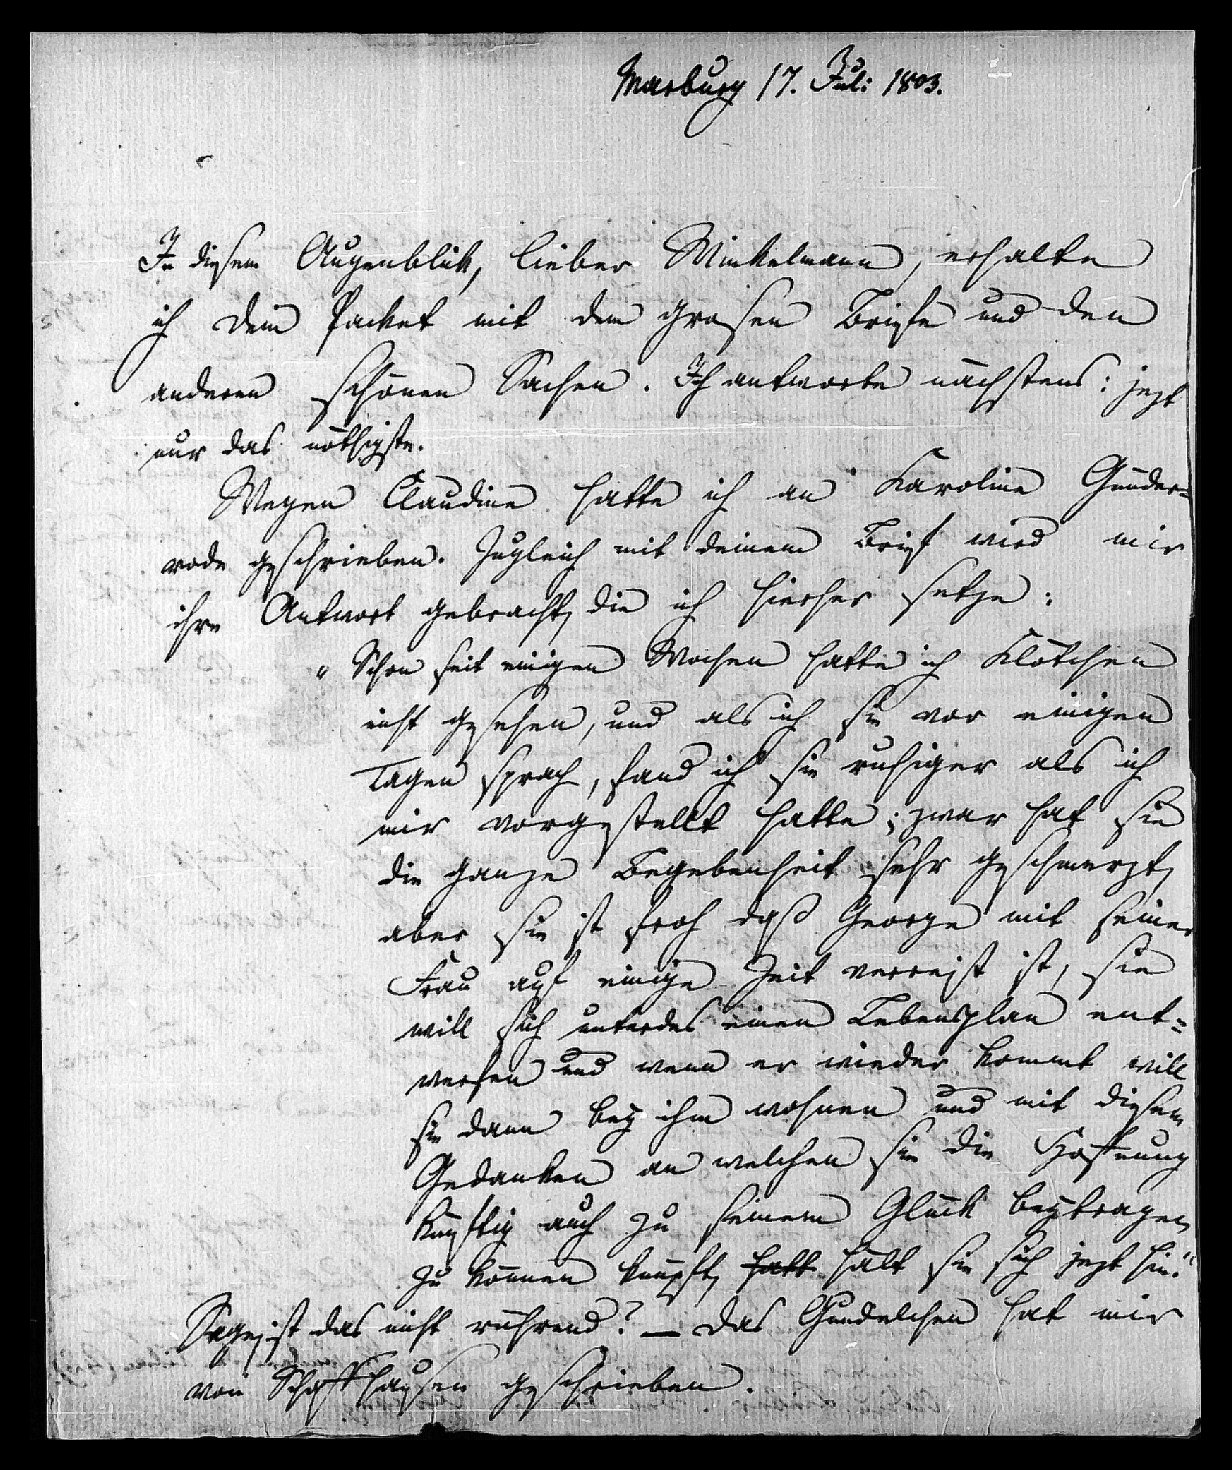 Marburg 17. Juli 1803.
In diesem Augenblik, lieber Winkelmann, erhalte
ich dein Packet mit dem grosen Briefe und den
anderen schönen Sachen. Ich antworte nächstens: jezt
nur das nöthigste.
Wegen Claudine hatte ich an Karoline Günder=
rode geschrieben. Zugleich mit deinem Brief wird mir
ihre Antwort gebracht, die ich hierher setze:
„Schon seit einigen Wochen hatte ich Klötchen
nicht gesehen, und als ich sie vor einigen
Tagen sprach, fand ich sie ruhiger als ich
mir vorgestellt hatte; zwar hat sie
die ganze Begebenheit sehr geschmerzt,
aber sie ist froh daß George mit seiner
Frau auf einige Zeit verreist ist, sie
will sich unterdes einen Lebensplan ent=
werfen und wenn er wieder kommt will
sie dann bey ihm wohnen und mit diesem
Gedanken an welchen sie die Hoffnung
künftig auch zu seinem Glück beytragen
zu können knüpft, hatt hält sie sich jezt hin.“
Sage, ist das nicht rührend? — Das Gundelchen hat mir
von Schaffhausen geschrieben.